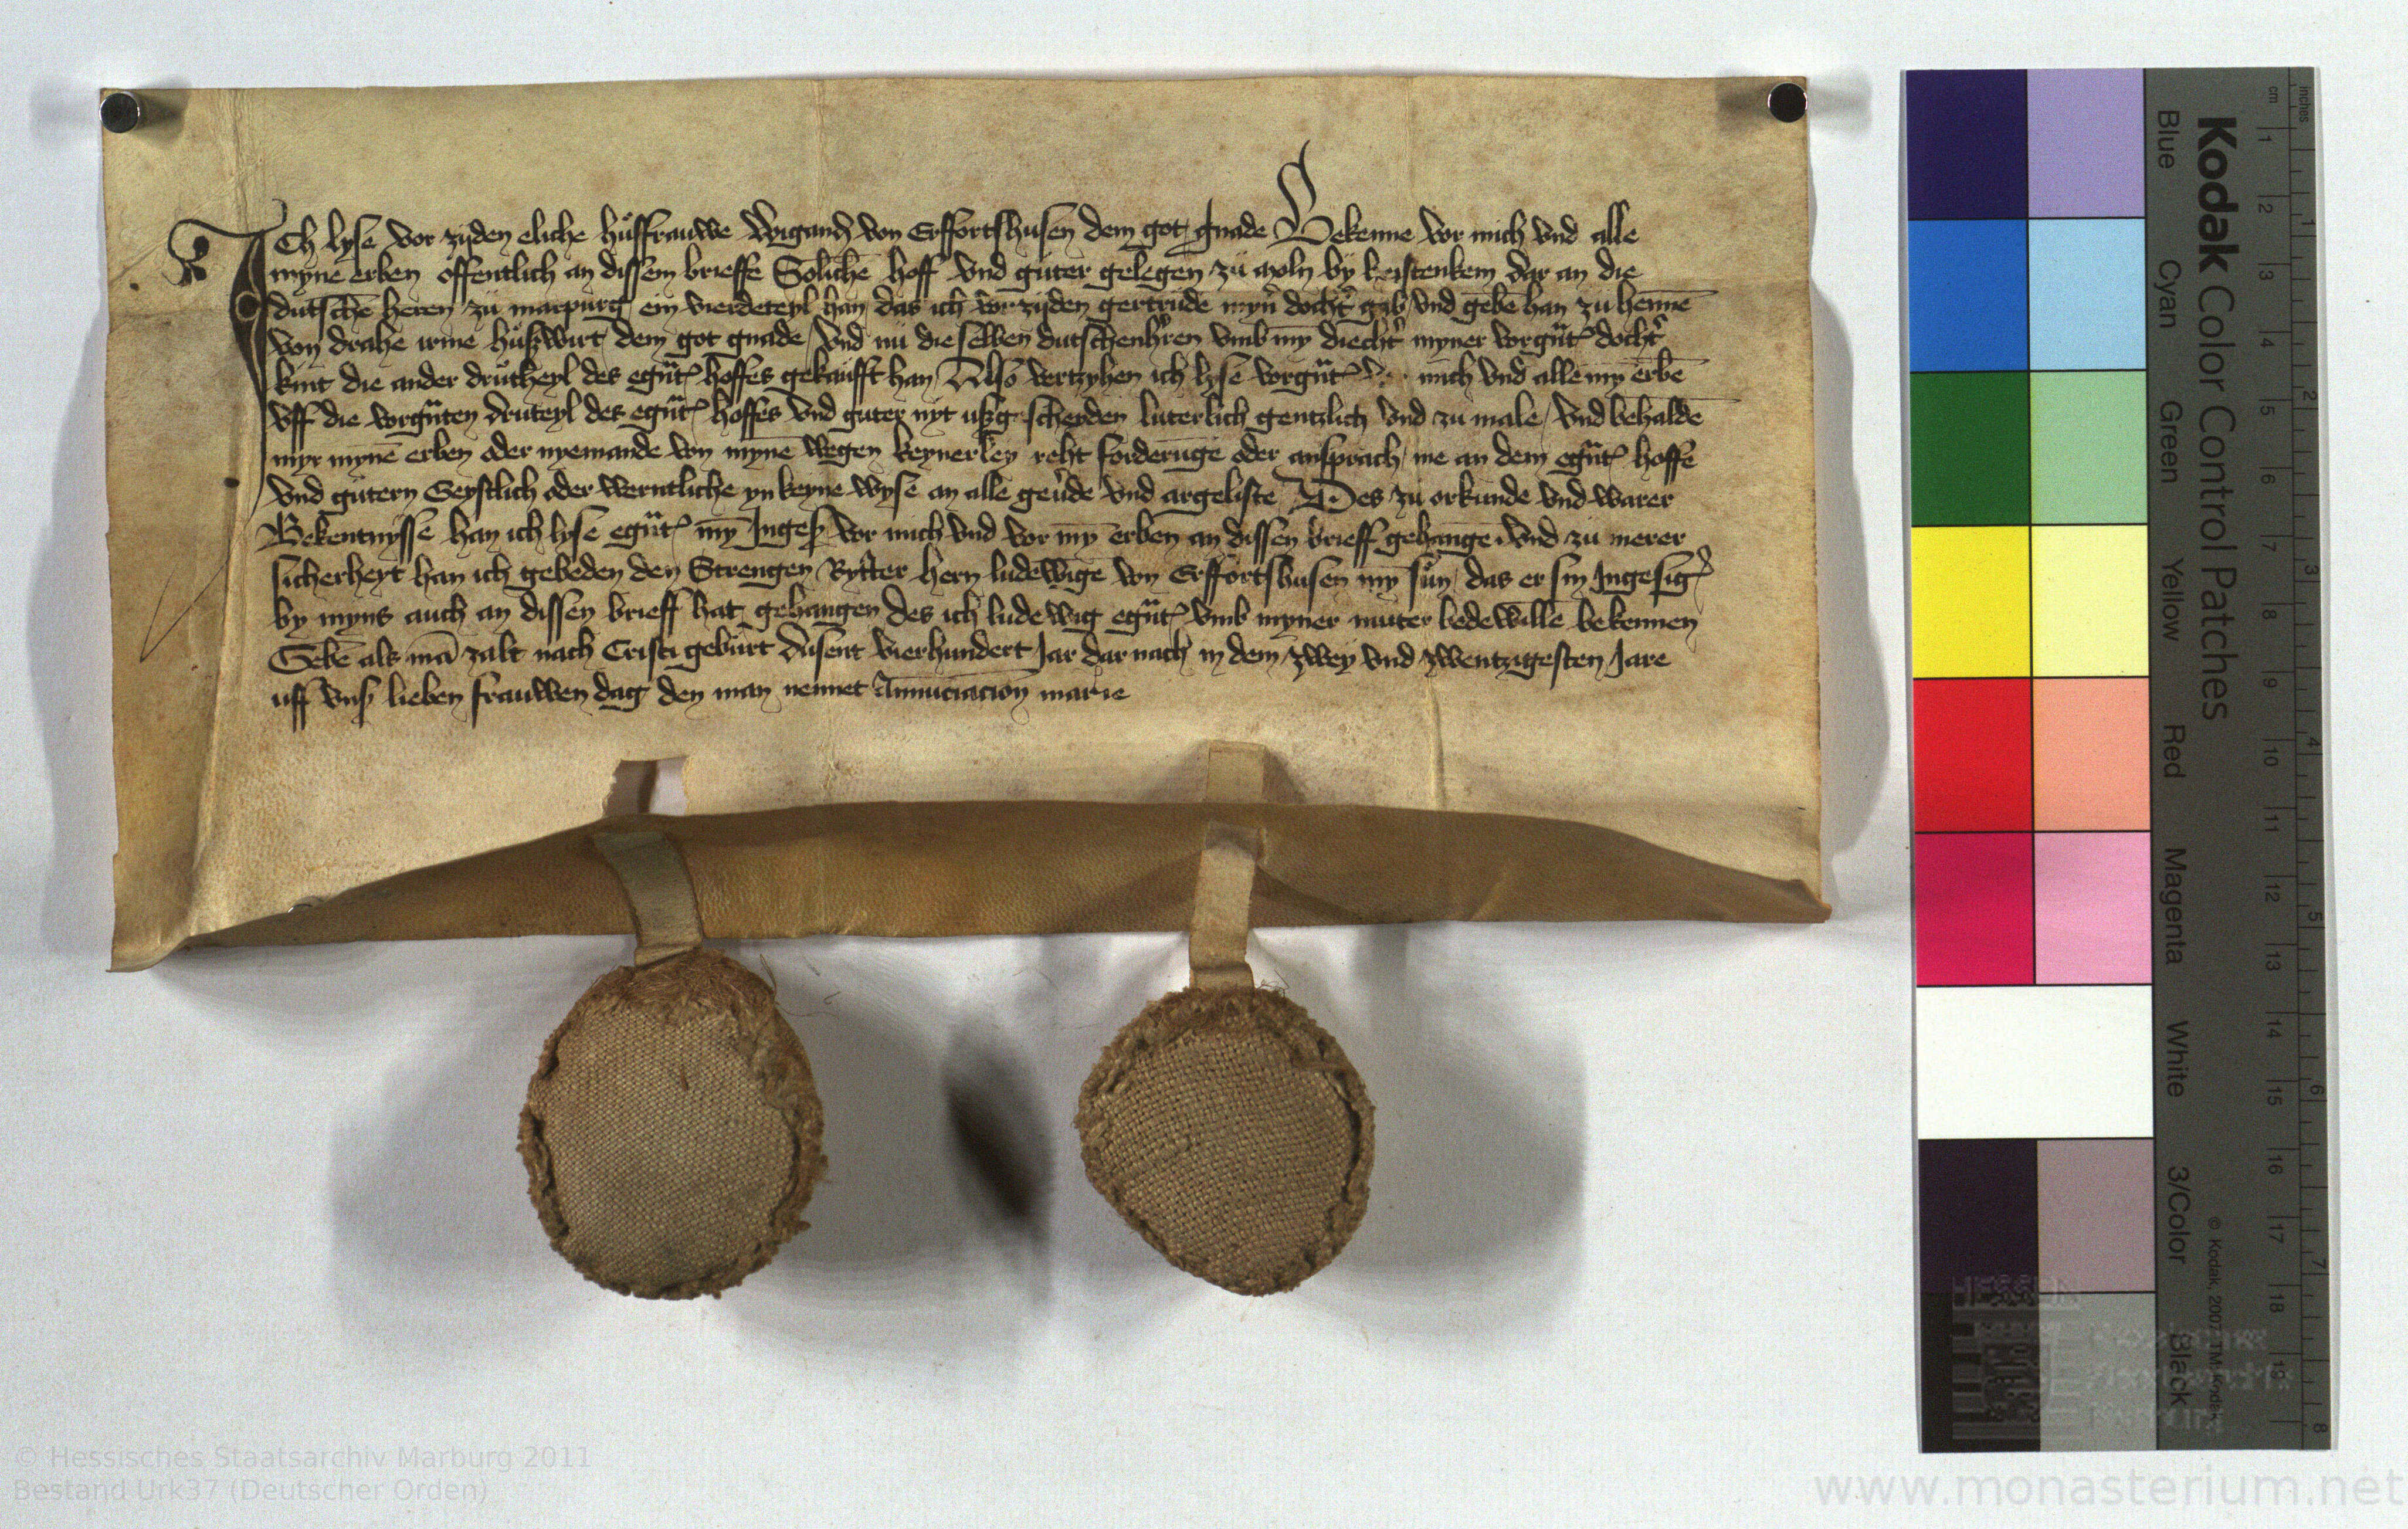 Ich lyse vor zyden eliche hůsfrauwe Wigandſ von Erffortshusen dem got gnade Bekenne vor mich vnd alle
myne̅ erben offentlich an dissem brieffe Soliche̅ hoff vnd guter gelegen zu moln by kristenkem dar an die
dutsche̅ heren zu marpurg ein vierdeteyl han das ich vorzijden gertrude myn̾ docht̾ gab vnd gebe̅ han zu henne̅
von drahe irme hůszwirt dem got gnade vnd nu die selben dutschenh̾ren vmb my̅ diecht̾ myner vorgn̅t̾ docht̾
kint die ander drůtheyl des egn̅t̾ hoffes gekaufft han Also vertzyhen ich lyse vorgn̅t̾ mich vnd alle my erbe̅
vff die vorgn̅ten druteyl des egn̅t̾ hoffes vnd guter nyt uszgescheyden luterlich gentzlich vnd zu male vnd behalde̅
myr myne̅ erben oder nyemande von myne̅ wegen keynerley reht forderu̅ge oder ansprach me an dem egn̅t̾ hoffe
vnd gutern Geystlich oder werntliche yn keyne wyse an alle gev̾de vnd argeliste Des zu orkunde vnd warer
Bekentnysse han ich lyse egn̅t̾ my̅ Ingesſ vor mich vnd vor my̅ erben an dissen brieff gehange̅ vnd zu merer
sicherheyt han ich gebeden den Strengen Rytter hern ludewige̅ von Erffortshusen my̅ sůn das er sin Ingesig̾
by myns auch an dissen brieff hat gehangen des ich ludewig egn̅t̾ vmb myner muter bede wille̅ bekennen
Gebe̅ als ma̅ zalt nach Cristi geburt dusent vierhundert Jar dar nach in dem zwey vnd zwentzigesten Jare
uff vnsſ lieben frauwen dag den man nennet Annu̅ciacion marie
Kodak Color Control Patches
Blue Cyan Green Yellow Red Magenta White 3/Color Black
cm 1 2 3 4 5 6 7 8 9 10 11 12 13 14 15 16 17 18 19
inches 1 2 3 4 5 6 7 8
© Kodak, 2007 TM: Kodak
© Hessisches Staatsarchiv Marburg 2011
Bestand Urk37 (Deutscher Orden)
www.monasterium.net